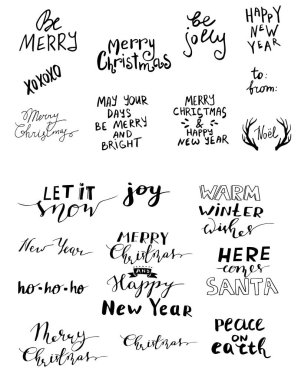 Be
MERRY
Merry
Christmas
be
jolly
HAPPY
NEW
YEAR
XOXOXO
to:
from:
Merry
Christmas
MAY YOUR
DAYS
BE MERRY
AND
BRIGHT
MERRY
CHRISTMAS
&
HAPPY
NEW YEAR
Noël
LET IT
snow
joy
WARM
WINTER
wishes
New Year
MERRY
Christmas
AND
Happy
New Year
HERE
comes
SANTA
ho-ho-ho
Merry
Christmas
Christmas
PEACE
ON
earth